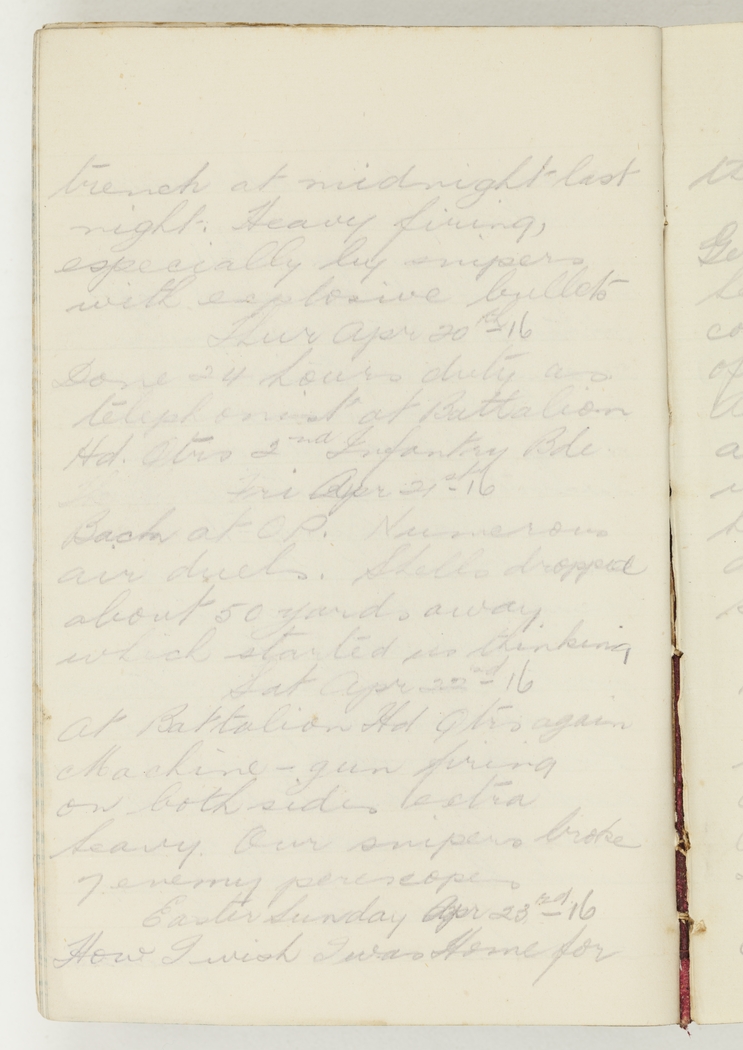 trench at midnight last
night. Heavy firing,
especially by snipers
with explosive bullets
Thur Apr 20th-16
Done 24 hours duty as
telephonist at Battalion
Hd. Qtrs 2nd Infantry Bde
Fri Apr 21st-16
Back at O.P. Numerous
air duels. Shells dropped
about 50 yards away
which started us thinking
Sat Apr 22nd-16
At Battalion Hd Qtrs again
Machine-gun firing
on both sides extra
heavy. Our snipers broke
7 enemy perescopes
Easter Sunday Apr 23rd-16
How I wish I was Home for